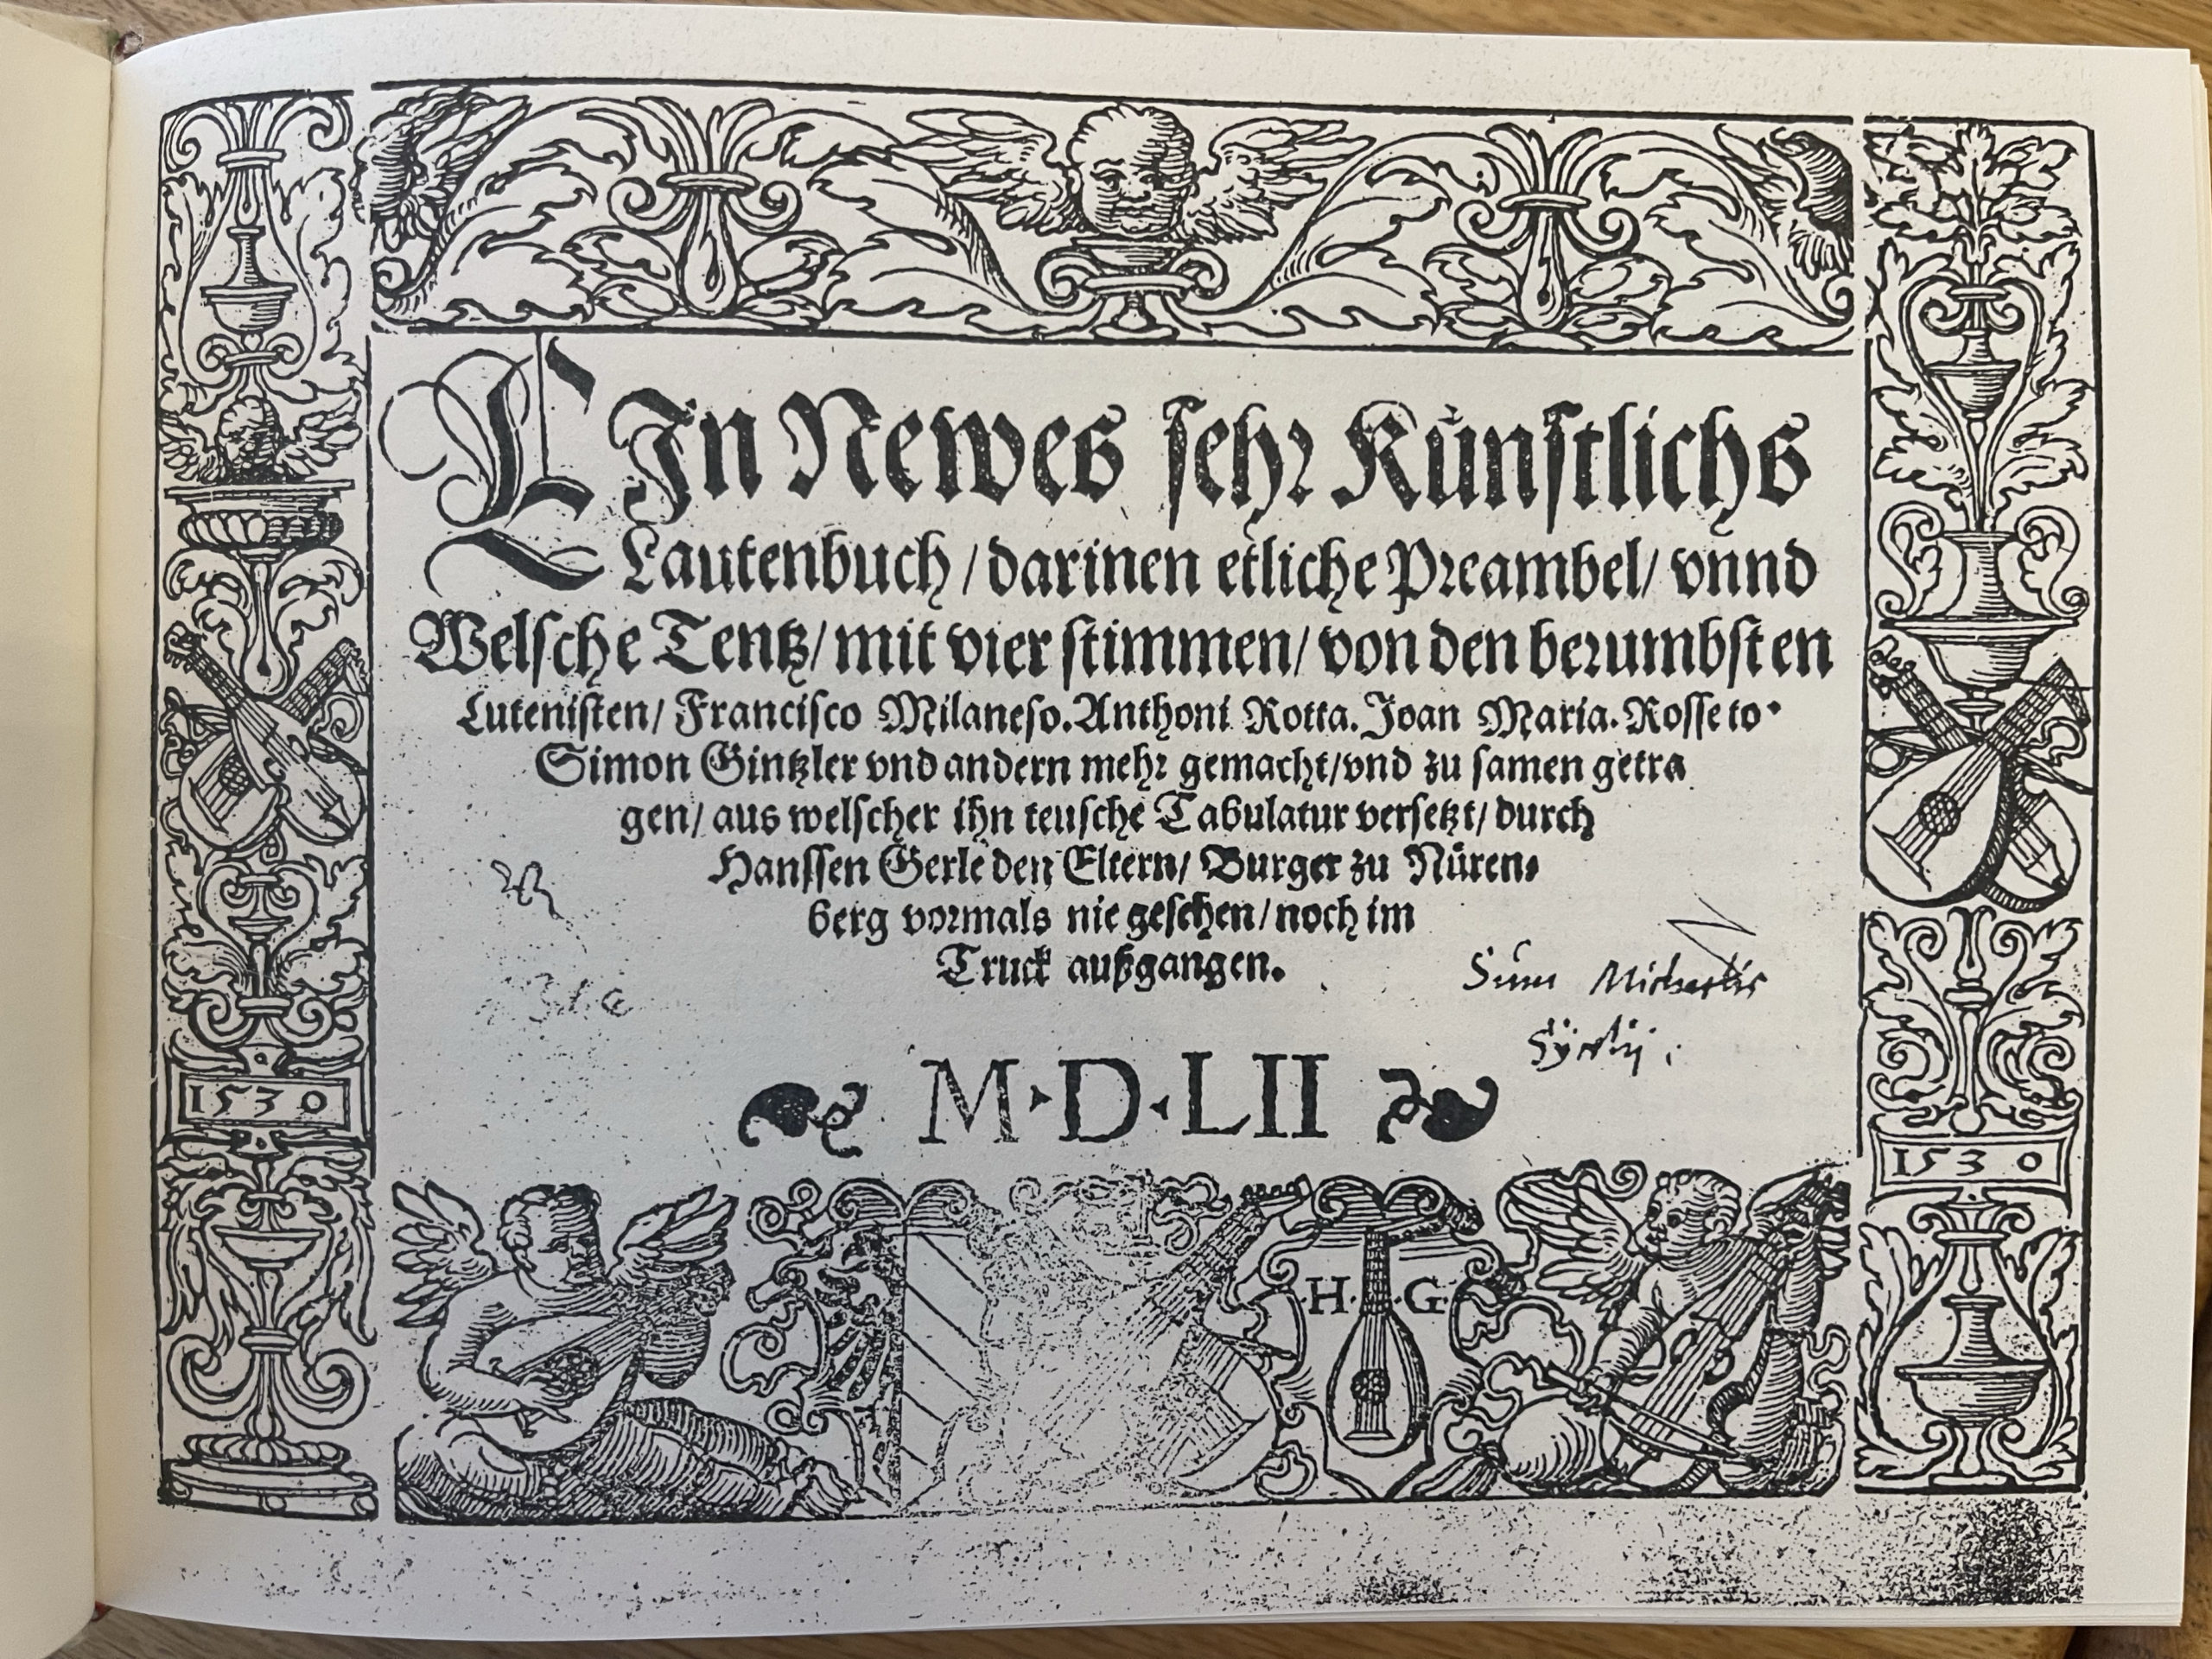 EIn Newes sehr Künstlichs
Lautenbuch / darinen etliche Preambel / vnnd
Welsche Tentz / mit vier stimmen / von den berumbsten
Lutenisten / Francisco Milaneso. Anthoni Rotta. Joan Maria. Rosseto.
Simon Gintzler vnd andern mehr gemacht / vnd zu samen getra
gen / aus welscher ihn teusche Tabulatur versetzt / durch
Hanssen Gerle den Eltern / Burger zu Nüren-
berg vormals nie gesehen / noch im
Truck außgangen.
Sum Michaelis
M·D·LII
1530
1530
H. G.